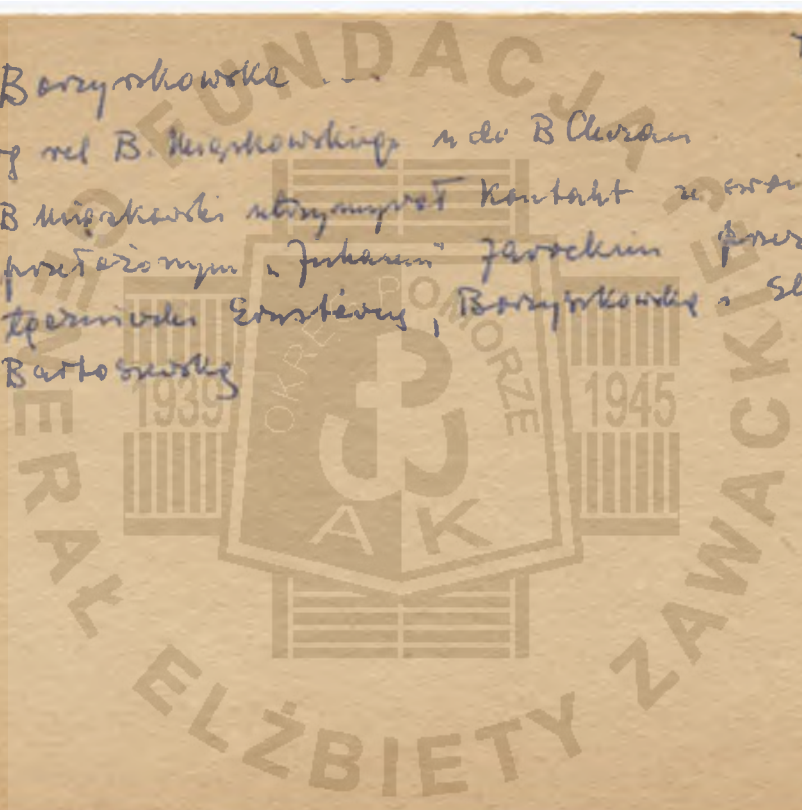 T
Borzyszkowska ...
g rel B. Mięskowskiego u do B Chrzan
B Mięskowski utrzymywał kontakt ze swoim
przełożonym "Juhasem" Jarockim przez
łączniczki Ernstównę, Borzyszkowską i
Bartoszewską
FUNDACJA GENERAŁ ELŻBIETY ZAWACKIEJ
OKRĘG POMORZE
1939 1945
A K